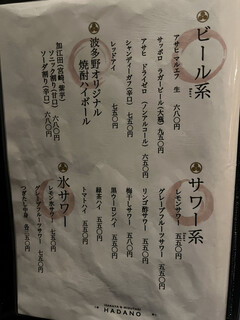 ビール系
Beer
アサヒ マルエフ 生 六八〇円
サッポロ ラガービール(大瓶) 九五〇円
アサヒ ドライゼロ (ノンアルコール) 六五〇円
シャンディガフ(辛口) 七五〇円
レッドアイ 七五〇円
波多野オリジナル
焼酎ハイボール
加江田(宮崎、紫芋)
ソニック割り(甘口) 六八〇円
ソーダ割り(辛口) 六八〇円
サワー系
Sour
レモンサワー 五五〇円
グレープフルーツサワー 五五〇円
リンゴ酢サワー 五五〇円
梅干しサワー 五五〇円
黒ウーロンハイ 五五〇円
緑茶ハイ 五五〇円
トマトハイ 五五〇円
氷サワー
レモン氷サワー 七五〇円
グレープフルーツサワー 七五〇円
HADANO